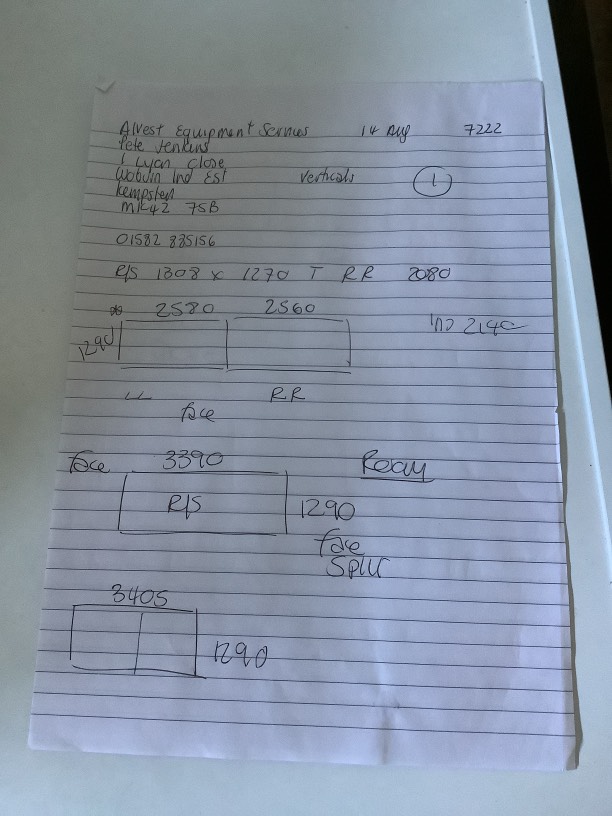 Alvest Equipment Services 14 Aug 7222
Pete Jenkins
1 Lyon Close
Woburn Ind Est Verticals 1
Kempston
MK42 7SB
01582 835156
R/S 1308 x 1270 T RR 2080
2580 2560
1290 2140
LL RR
face
face 3390 Ready
R/S 1290
face
Split
3405
1290